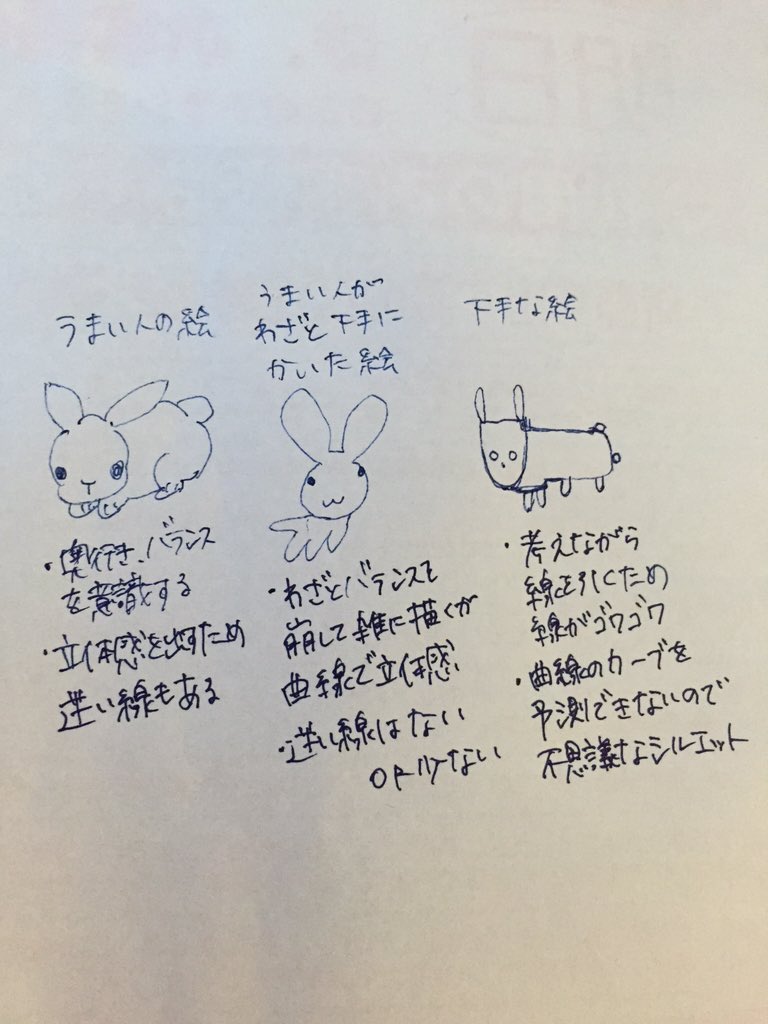 うまい人の絵
・奥行き、バランス
を意識する
・立体感を出すため
迷い線もある
うまい人が
わざと下手に
かいた絵
・わざとバランスを
崩して雑に描くが
曲線で立体感
・迷い線はない
or 少ない
下手な絵
・考えながら
線を引くため
線がゴワゴワ
・曲線のカーブを
予測できないので
不思議なシルエット